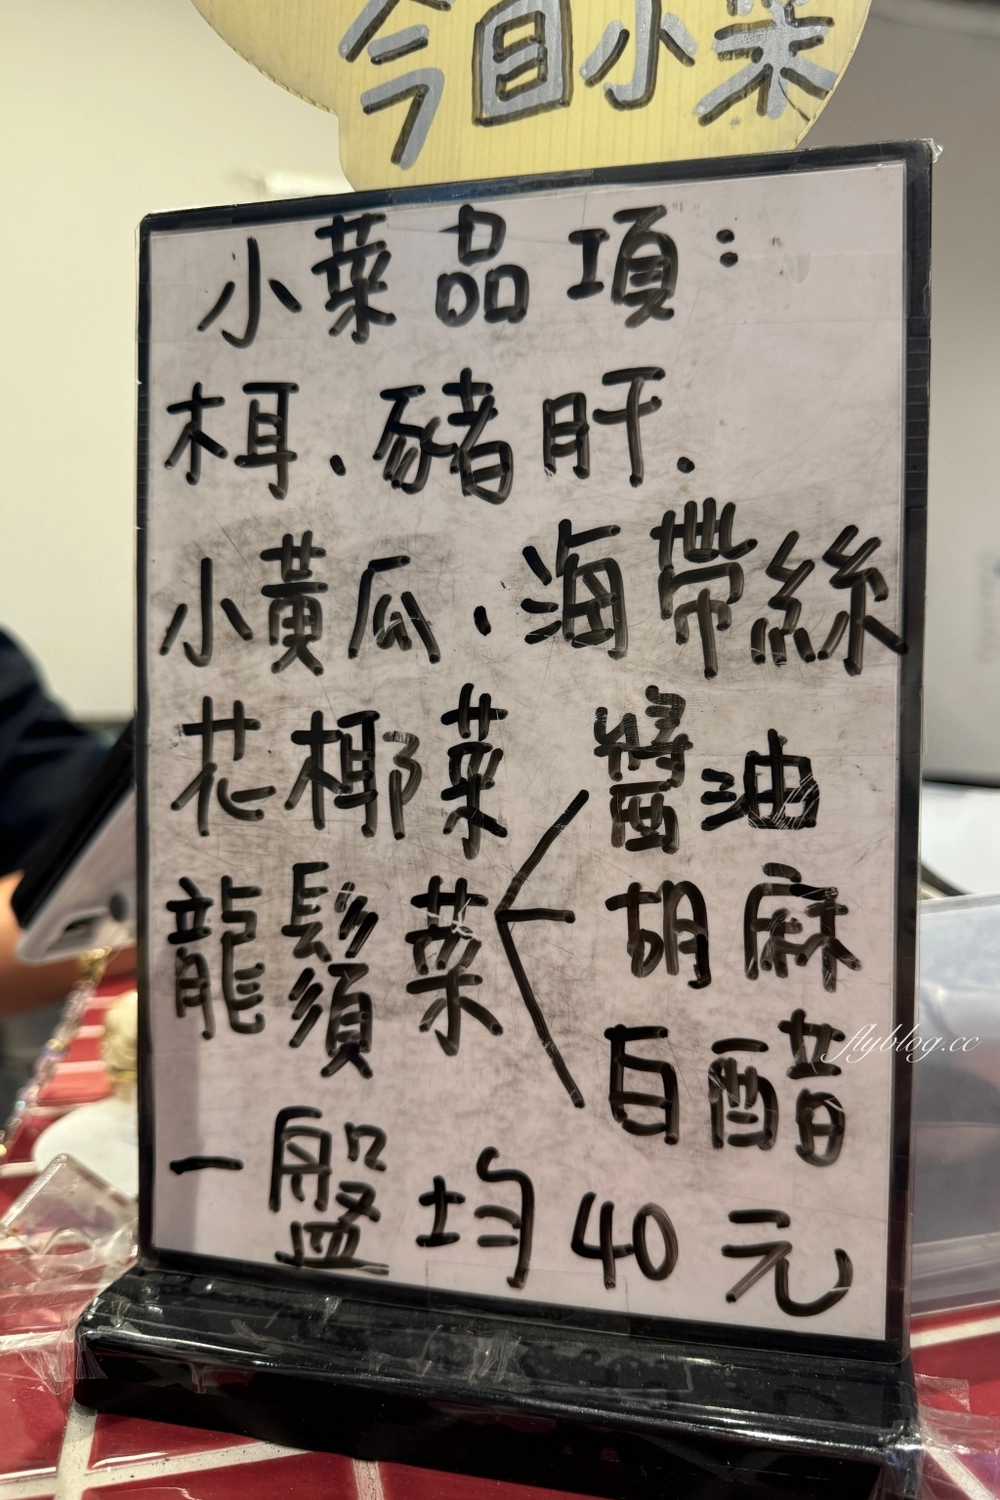 今日小菜
小菜品項:
木耳、豬肝、
小黃瓜、海帶絲
花椰菜 醬油
龍鬚菜 胡麻
白醋
一盤均40元
flyblog.cc